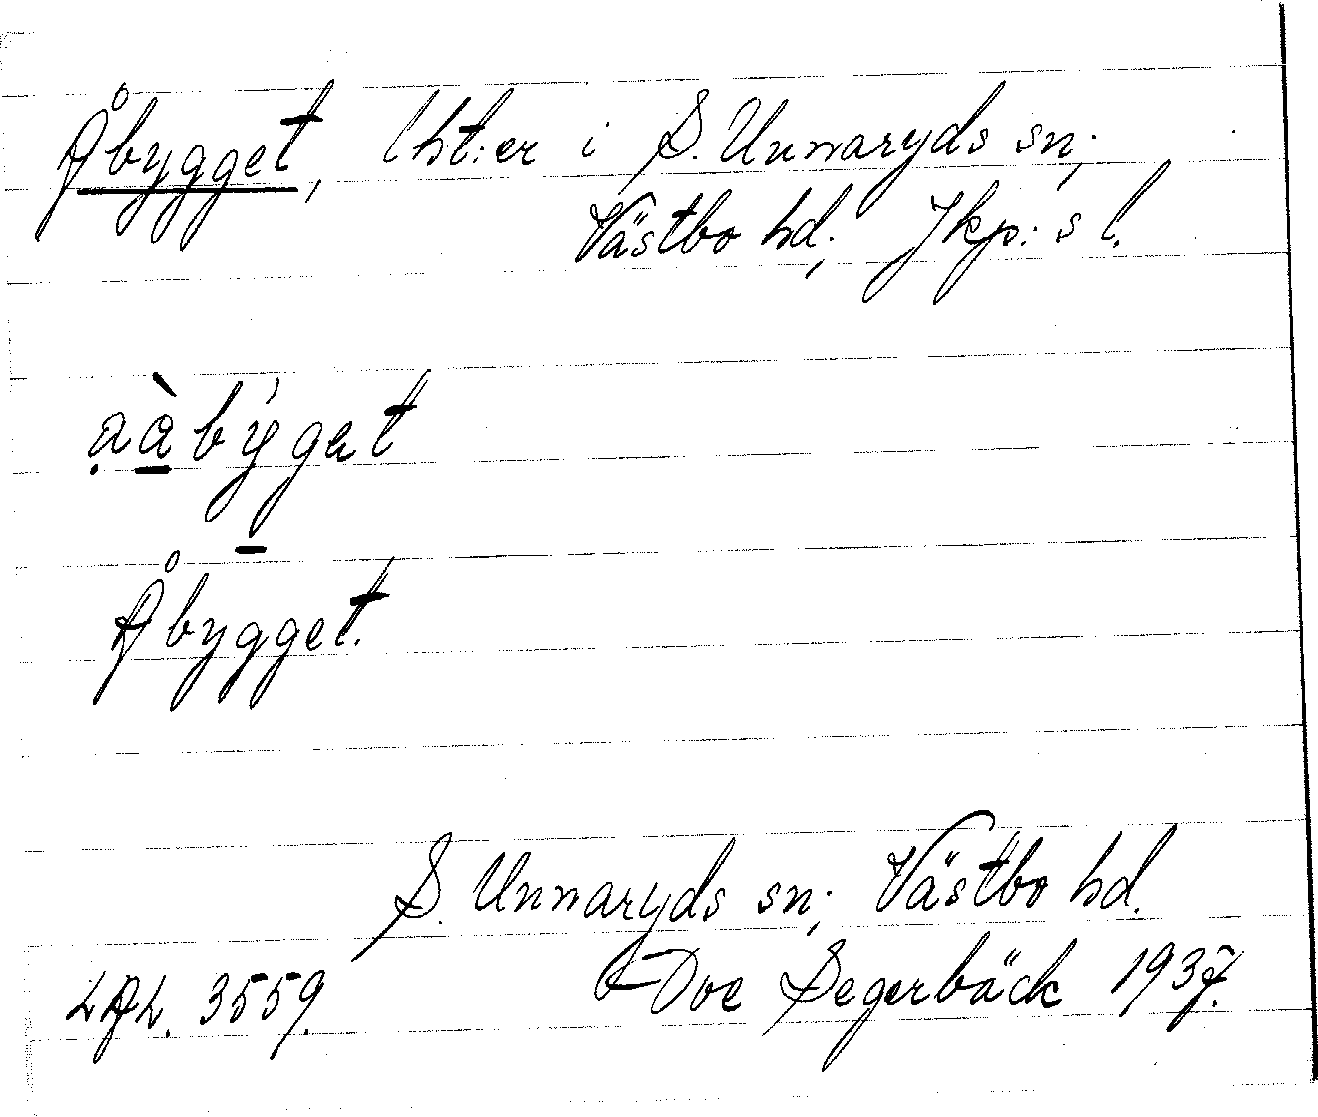 Åbygget, lht:er i S. Unnaryds sn;
Västbo hd; Jkp:s l.
aàbýgat
Åbygget.
S. Unnaryds sn; Västbo hd.
LAL. 3559. Ove Segerbäck 1937.